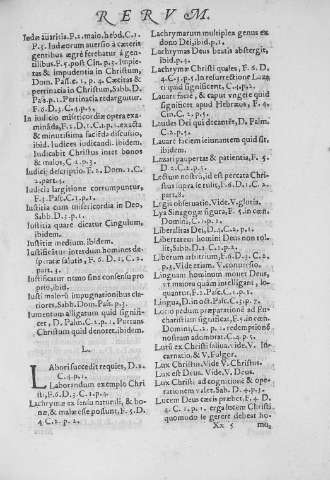 RERVM.
Iudæ auaritia. F.2. maio, hebd. C.1.
p.5. Iudæorum auersio à cæteris
gentibus ægrè ferebatur à gentilibus.
F.5. post Cin. p.5. Impietas
& impudentia in Christum,
Dom. Pass. p.1. Cæcitas &
pertinacia in Christum, Sabb. D.
Pass. p.1. Pertinacia redarguitur.
F.6. D.3. C.4. p.5.
In iudicio misericordiæ opera examināda,
F.1. D.1. C.2. p.1. exacta
& minutissima faciēda discussio,
ibid. Iudices iudicandi. ibidem.
Iudicabit Christus inter bonos
& malos, C.2. p.3.
Iudicij descriptio. F.2. Dom. 1. C.
2. part. 5.
Iudicia largitione corrumpuntur,
F.3. Pass. C.3. p.1.
Iustitia cum misericordia in Deo,
Sabb. D.3. p.1.
Iustitia quare dicatur Cingulum,
ibidem.
Iustitiæ medium. ibidem.
Iustificātur interdum homines desperatæ
salutis, F.6. D.2. C.2.
part. 5.
Iustificatur nemo sine consensu proprio,
ibid.
Iusti malorū impugnationibus clariores.
Sabb. Dom. Pass. p.3.
Iumentum alligatum quid significet,
D. Palm. C.2. p.1. Portans
Christum quid denotet. ibidem.
L.
LAbori succedit requies, D.2.
C.4. p.1.
Laborandum exemplo Christi,
F.6. D.3. C.1. p.4.
Lachrymæ ex sensu naturali, & bonæ,
& malæ esse possunt, F.5. D.
4. C.2. p.2.
Lachrymarum multiplex genus ex
dono Dei, ibid. p.1.
Lachrymas Deus beatis absterget,
ibid. p.4.
Lachrymæ Christi quales, F.6. D.
4. C.3. p.5. In resurrectione Lazari
quid significent, C.4. p.2.
Lauare faciē, & caput vngere quid
significet apud Hebræos, F.4.
Cin. C.2. p.5.
Laudes Dei qui decantēt, D. Palm.
C.2. p.5.
Lauare faciem ieiunantem quid sit.
ibidem.
Lazari paupertas & patientia, F.5.
D.2. C.2. p.5.
Lectum nostrū, id est peccata Christus
supra se tulit, F.6. D.1. C.2.
part. 8.
Legis obseruatio. Vide. V. gloria.
Lya Sinagogæ figura, F.5. in cœn.
Domini, C.1. p.1.
Liberalitas Dei, D.4. C.2. p.1.
Libertatem homini Deus non tollit,
Sabb. D.2. C.1. p.2.
Liberum arbitrium, F.6. D.3. C.2.
p.5. Vide etiam. V. consensus.
Linguam hominum mouet Deus,
vt maiora quàm intelligant, loquantur,
F.2. Pass. C.1. p.1.
Lingua, D. in oct. Pass. C.3. p.7.
Lotio pedum præparationē ad Eucharistiam
significat, F.5. in cœn.
Domini, C.1. p.1. redemptionē
nostram adombrat, C.4. p.5.
Lutū ex Christi saliua, vide. V. Incarnatio.
& V. Fulgor.
Lux Christus. Vide V. Christus.
Lux est Deus. Vide V. Deus.
Lux Christi ad cognitione & operationem
valet. Sab. D.4. p.5.
Lucem Deus cæcis præbet, F.4. D.
4. C.1. p.1. erga lotem Christi
quomodo se gerere debeat ho-
Xx 5 mo,